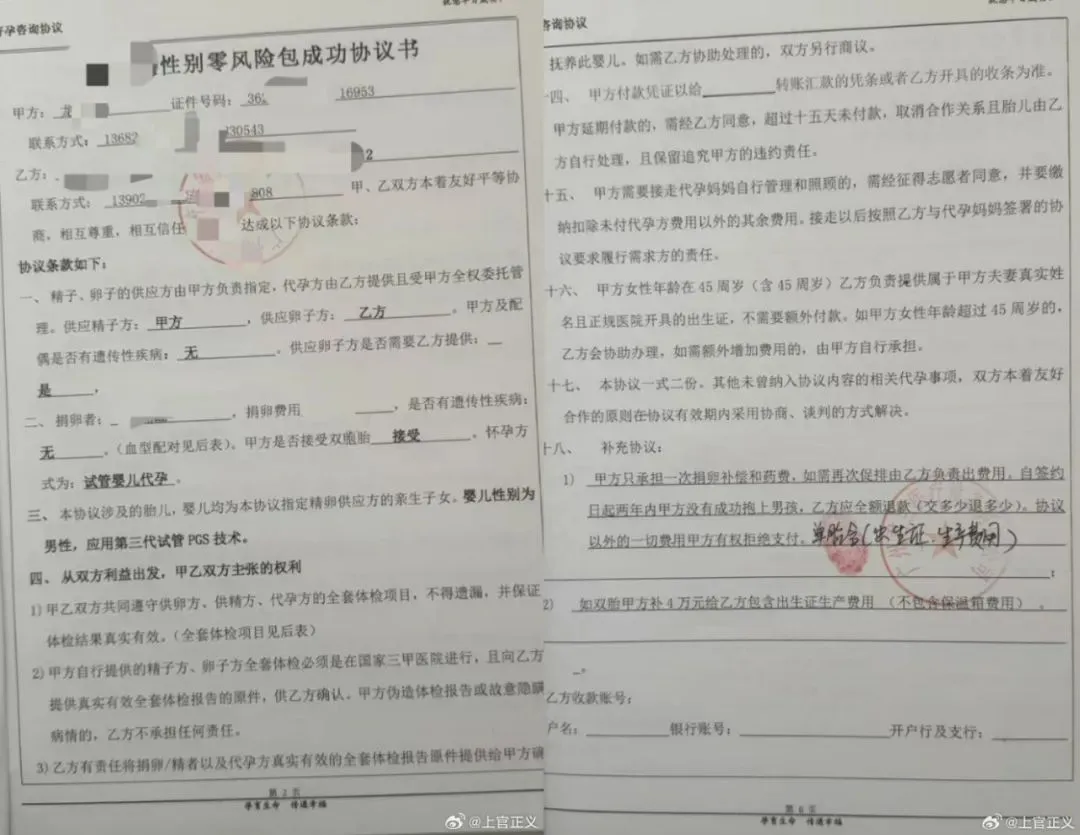 孕咨询协议
性别零风险包成功协议书
甲方：龙 证件号码：362 16953
联系方式：13682 130543
乙方： 2
联系方式：13902 808 甲、乙双方本着友好平等协
商，相互尊重，相互信任 达成以下协议条款：
协议条款如下：
一、 精子、卵子的供应方由甲方负责指定，代孕方由乙方提供且受甲方全权委托管
理。供应精子方：甲方，供应卵子方：乙方。甲方及配
偶是否有遗传性疾病：无。供应卵子方是否需要乙方提供：
是，
二、 捐卵者： ，捐卵费用 ，是否有遗传性疾病：
无。（血型配对见后表）。甲方是否接受双胞胎接受。怀孕方
式为：试管婴儿代孕。
三、 本协议涉及的胎儿，婴儿均为本协议指定精卵供应方的亲生子女。婴儿性别为
男性，应用第三代试管 PGS 技术。
四、 从双方利益出发，甲乙双方主张的权利
1) 甲乙双方共同遵守供卵方、供精方、代孕方的全套体检项目，不得遗漏，并保证
体检结果真实有效。（全套体检项目见后表）
2) 甲方自行提供的精子方、卵子方全套体检必须是在国家三甲医院进行，且向乙方
提供真实有效全套体检报告的原件，供乙方确认。甲方伪造体检报告或故意隐瞒
病情的，乙方不承担任何责任。
3) 乙方有责任将捐卵/精者以及代孕方真实有效的全套体检报告原件提供给甲方确
第 2 页
孕育生命 传递幸福
咨询协议
抚养此婴儿。如需乙方协助处理的，双方另行商议。
十四、 甲方付款凭证以给________转账汇款的凭条或者乙方开具的收条为准。
甲方延期付款的，需经乙方同意，超过十五天未付款，取消合作关系且胎儿由乙
方自行处理，且保留追究甲方的违约责任。
十五、 甲方需要接走代孕妈妈自行管理和照顾的，需经征得志愿者同意，并要缴
纳扣除未付代孕方费用以外的其余费用。接走以后按照乙方与代孕妈妈签署的协
议要求履行需求方的责任。
十六、 甲方女性年龄在 45 周岁（含 45 周岁）乙方负责提供属于甲方夫妻真实姓
名且正规医院开具的出生证，不需要额外付款。如甲方女性年龄超过 45 周岁的，
乙方会协助办理，如需额外增加费用的，由甲方自行承担。
十七、 本协议一式二份。其他未曾纳入协议内容的相关代孕事项，双方本着友好
合作的原则在协议有效期内采用协商、谈判的方式解决。
十八、 补充协议：
1) 甲方只承担一次捐卵补偿和药费，如需再次促排由乙方负责出费用。自签约
日起两年内甲方没有成功抱上男孩，乙方应全额退款（交多少退多少）。协议
以外的一切费用甲方有权拒绝支付。单胎含（出生证.生产费用）
；
2) 如双胎甲方补 4 万元给乙方包含出生证生产费用 （不包含保温箱费用） 。
。
乙方收款账号：
户名：________银行账号：________开户行及支行：________
第 6 页
孕育生命 传递幸福
@上官正义
@上官正义